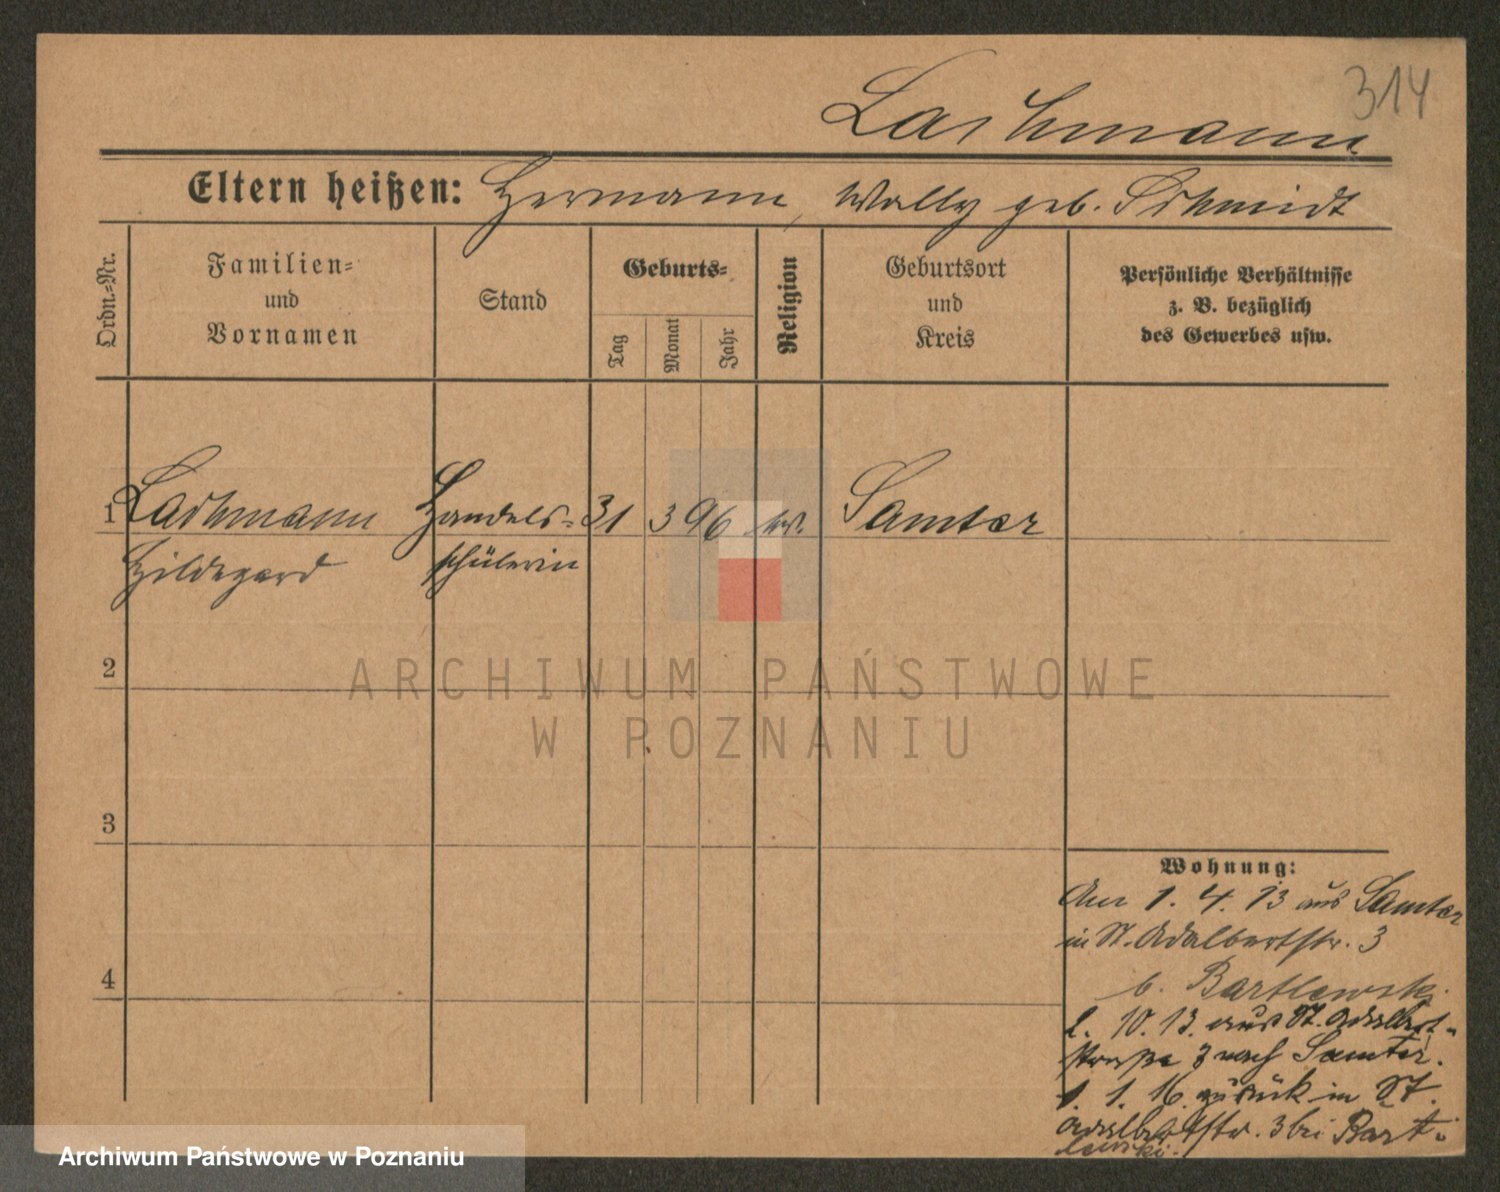 314
Lachmann
Eltern heißen: Hermann, Wally geb. Schmidt
Ordn.-Nr.
Familien-
und
Vornamen
Stand
Geburts-
Tag
Monat
Jahr
Religion
Geburtsort
und
Kreis
Persönliche Verhältnisse
z. B. bezüglich
des Gewerbes usw.
1 Lachmann Handels- 31 3 96 Samter
Hildegard schülerin
2
3
4
Wohnung:
Am 1. 4. 13 aus Samter
in St. Adalbertstr. 3
b. Bartlewski.
10. 13. aus St. Adalbert-
straße 3 nach Samter.
1. 16. zurück in St.
Adalbertstr. 3 bei Bart-
lewski.
ARCHIWUM PAŃSTWOWE
W POZNANIU
Archiwum Państwowe w Poznaniu